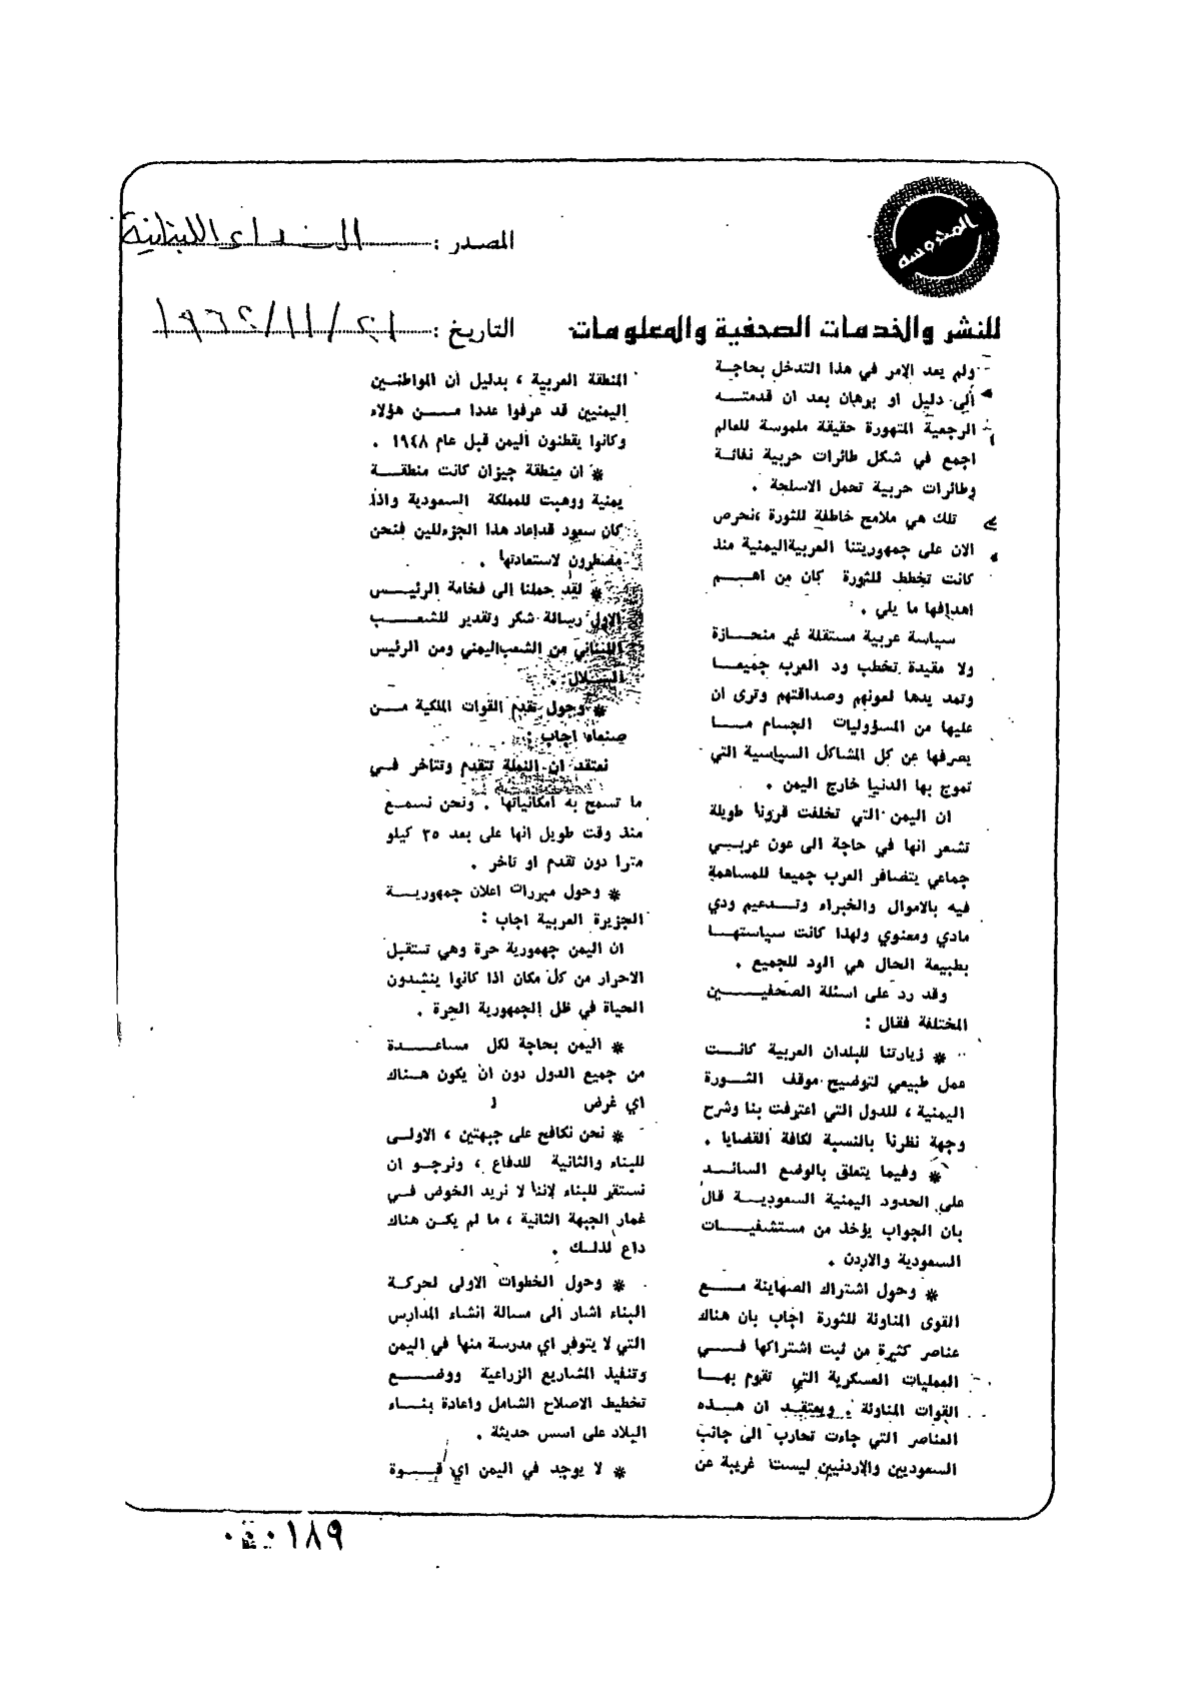 المصدر : النداء اللبنانية
المدوسه
للنشر والخدمات الصحفية والمعلومات
التاريخ : ٢١/١١/١٩٦٢
ولم يعد الامر في هذا التدخل بحاجة
الى دليل او برهان بعد ان قدمته
الرجعية المتهورة حقيقة ملموسة للعالم
اجمع في شكل طائرات حربية نفاثة
وطائرات حربية تحمل الاسلحة .
تلك هي ملامح خاطفة للثورة ،نحرص
الان على جمهوريتنا العربيةاليمنية منذ
كانت تخطط للثورة كان من اهم
اهدافها ما يلي .
سياسة عربية مستقلة غير منحازة
ولا مقيدة تخطب ود العرب جميعا
وتمد يدها لعونهم وصداقتهم وترى ان
عليها من المسؤوليات الجسام ما
يصرفها عن كل المشاكل السياسية التي
تموج بها الدنيا خارج اليمن .
ان اليمن التي تخلفت قرونا طويلة
تشعر انها في حاجة الى عون عربي
جماعي يتضافر العرب جميعا للمساهمة
فيه بالاموال والخبراء وتدعيم ودي
مادي ومعنوي ولهذا كانت سياستها
بطبيعة الحال هي الود للجميع .
وقد رد على اسئلة الصحفيين
المختلفة فقال :
* زيارتنا للبلدان العربية كانت
عمل طبيعي لتوضيح موقف الثورة
اليمنية ، للدول التي اعترفت بنا وشرح
وجهة نظرنا بالنسبة لكافة القضايا .
* وفيما يتعلق بالوضع السائد
على الحدود اليمنية السعودية قال
بان الجواب يؤخذ من مستشفيات
السعودية والاردن .
* وحول اشتراك الصهاينة مع
القوى المناوئة للثورة اجاب بان هناك
عناصر كثيرة من ثبت اشتراكها في
العمليات العسكرية التي تقوم بها
القوات المناوئة . ويعتقد ان هذه
العناصر التي جاءت تحارب الى جانب
السعوديين والاردنيين ليست غريبة عن
المنطقة العربية ، بدليل أن المواطنين
اليمنيين قد عرفوا عددا من هؤلاء
وكانوا يقطنون اليمن قبل عام ١٩٤٨ .
* ان منطقة جيزان كانت منطقة
يمنية ووهبت للمملكة السعودية واذا
كان سعود قداعاد هذا الجزءللين فنحن
مضطرون لاستعادتها .
* لقد حملنا إلى فخامة الرئيس
الاول رسالة شكر وتقدير للشعب
اللبناني من الشعباليمني ومن الرئيس
السلال .
* وحول تقدم القوات الملكية من
صنعاء اجاب :
نعتقد ان النملة تتقدم وتتاخر في
ما تسمح به امكانياتها . ونحن نسمع
منذ وقت طويل انها على بعد ٢٥ كيلو
مترا دون تقدم او تاخر .
* وحول مبررات اعلان جمهورية
الجزيرة العربية اجاب :
ان اليمن جمهورية حرة وهي تستقبل
الاحرار من كل مكان اذا كانوا ينشدون
الحياة في ظل الجمهورية الحرة .
* اليمن بحاجة لكل مساعدة
من جميع الدول دون ان يكون هناك
اي غرض
* نحن نكافح على جبهتين ، الاولى
للبناء والثانية للدفاع ، ونرجو ان
نستقر للبناء لاننا لا نريد الخوض في
غمار الجبهة الثانية ، ما لم يكن هناك
داع لذلك .
* وحول الخطوات الاولى لحركة
البناء اشار الى مسالة انشاء المدارس
التي لا يتوفر اي مدرسة منها في اليمن
وتنفيذ المشاريع الزراعية ووضع
تخطيط الاصلاح الشامل واعادة بناء
البلاد على اسس حديثة .
* لا يوجد في اليمن اي قوة